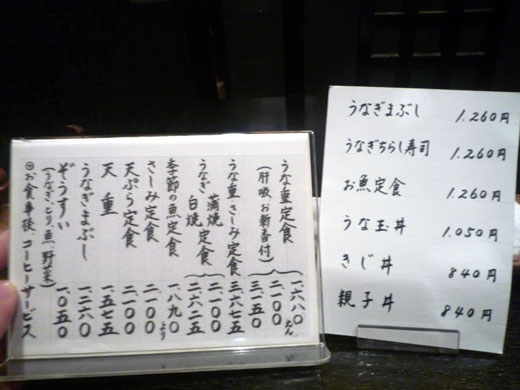 うな重定食
(肝吸お新香付)
一.六八〇えん
二.一〇〇
三.一五〇
うな重さしみ定食 三.六七五
うなぎ 蒲焼 白焼 定食
二.六二五
二.一〇〇
季節の魚定食 一.八九〇より
さしみ定食 二.一〇〇
天ぷら定食 二.一〇〇
天重 一.五七五
うなぎまぶし 一.二六〇
ぞうすい 一.〇五〇
(うなぎ、とり、魚、野菜)
お食事後、コーヒーサービス
うなぎまぶし 1.260円
うなぎちらし寿司 1.260円
お魚定食 1.260円
うな玉丼 1.050円
きじ丼 840円
親子丼 840円